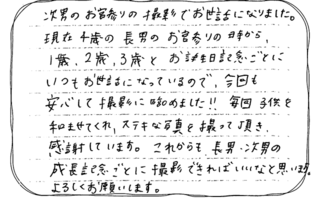 次男のお宮参りの撮影でお世話になりました。
現在4歳の長男のお宮参りの時から、
1歳、2歳、3歳とお誕生日記念ごとに
いつもお世話になっているので、今回も
安心して撮影に臨めました!! 毎回子供を
和ませてくれ、ステキな写真を撮って頂き、
感謝しています。これからも長男・次男の
成長記念ごとに撮影できればいいなと思います。
よろしくお願いします。